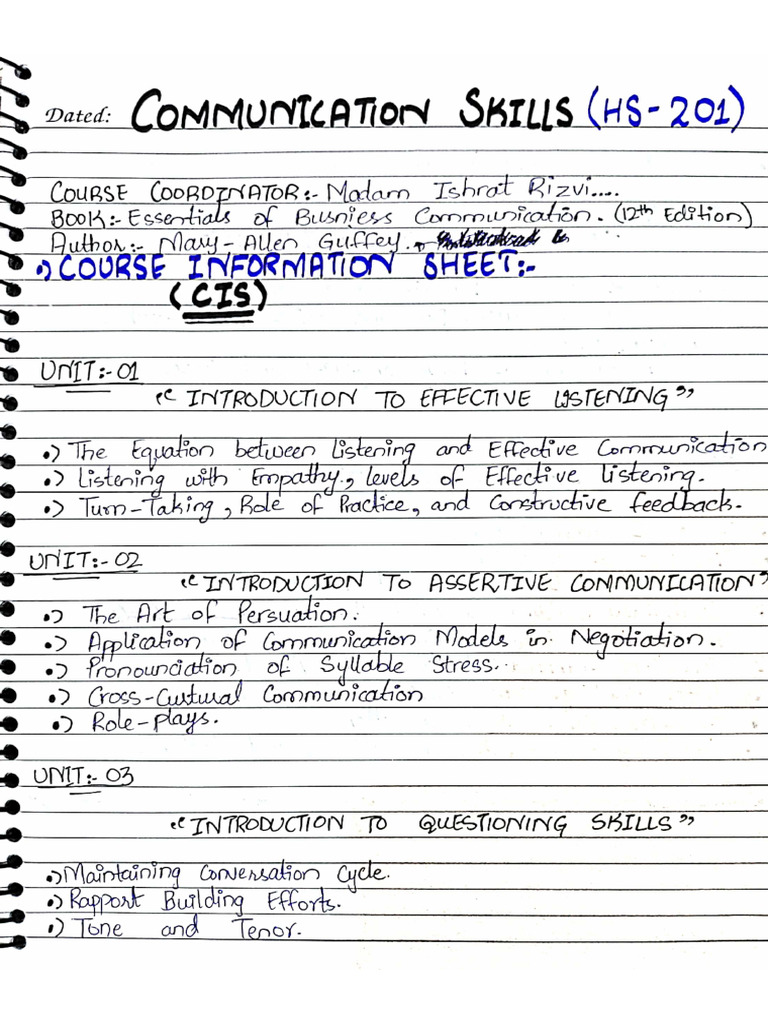 Dated: COMMUNICATION SKILLS (HS-201)
COURSE COORDINATOR:- Madam Ishrat Rizvi....
BOOK:- Essentials of Busniess Communication. (12th Edition)
Author:- Mary-Allen Guffey.
•) COURSE INFORMATION SHEET:-
(CIS)
UNIT:-01
"INTRODUCTION TO EFFECTIVE LISTENING"
•) The Equation between Listening and Effective Communication
•) Listening with Empathy, levels of Effective listening.
•) Turn-Taking, Role of Practice, and Constructive feedback.
UNIT:-02
"INTRODUCTION TO ASSERTIVE COMMUNICATION"
•) The Art of Persuation.
•) Application of Communication Models in Negotiation.
•) Pronounciation of Syllable Stress.
•) Cross-Cultural Communication
•) Role-plays.
UNIT:- 03
"INTRODUCTION TO QUESTIONING SKILLS"
•) Maintaining Conversation Cycle.
•) Rapport Building Efforts.
•) Tone and Tenor.